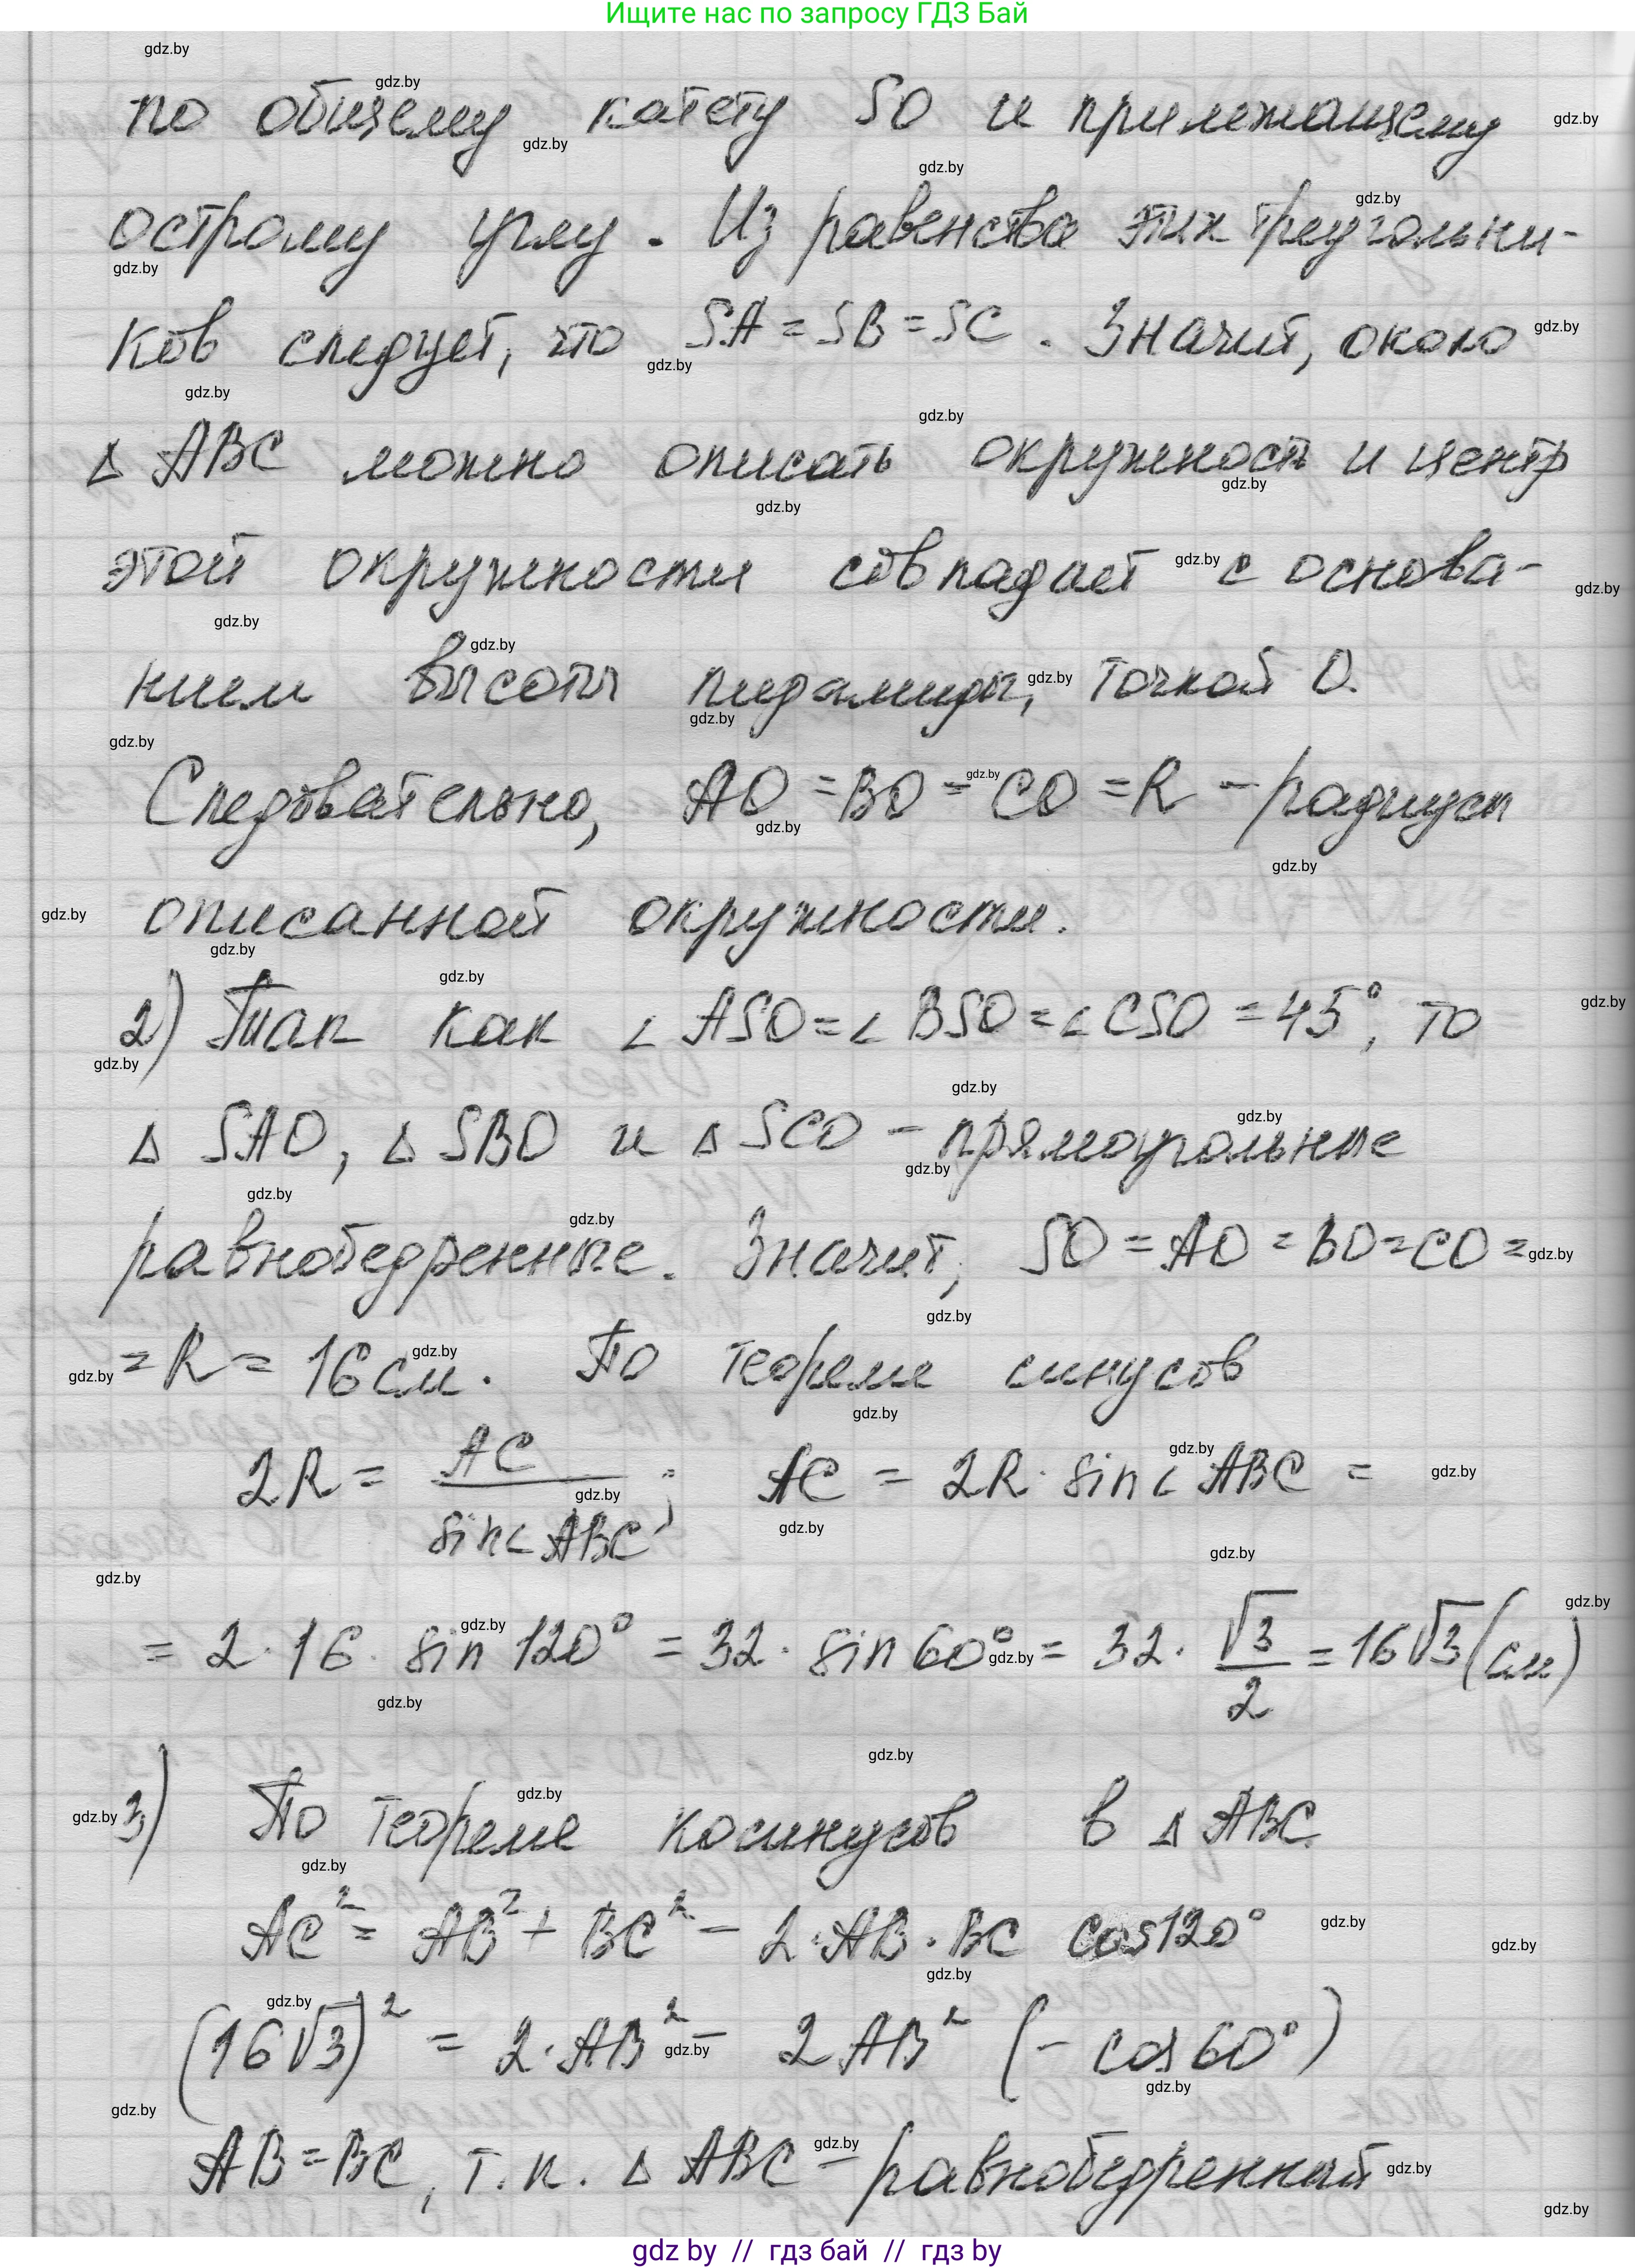 Ищите нас по запросу ГДЗ Бай
по общему катету SO и прилежащему
острому углу. Из равенства этих треугольни-
ков следует, что SA = SB = SC. Значит, около
△ ABC можно описать окружность и центр
этой окружности совпадает с основа-
нием высоты пирамиды, точкой O.
Следовательно, AO = BO = CO = R - радиусы
описанной окружности.
2) Так как ∠ ASO = ∠ BSO = ∠ CSO = 45°, то
△ SAO, △ SBO и △ SCO - прямоугольные
равнобедренные. Значит, SO = AO = BO = CO =
= R = 16 см. По теореме синусов
2R = AC / sin∠ABC; AC = 2R · sin∠ABC =
= 2 · 16 · sin 120° = 32 · sin 60° = 32 · √3/2 = 16√3 (см)
3) По теореме косинусов в △ ABC
AC² = AB² + BC² - 2·AB·BC cos120°
(16√3)² = 2·AB² - 2AB² (- cos 60°)
AB = BC, т.к. △ ABC - равнобедренный
gdz by // гдз бай // гдз by